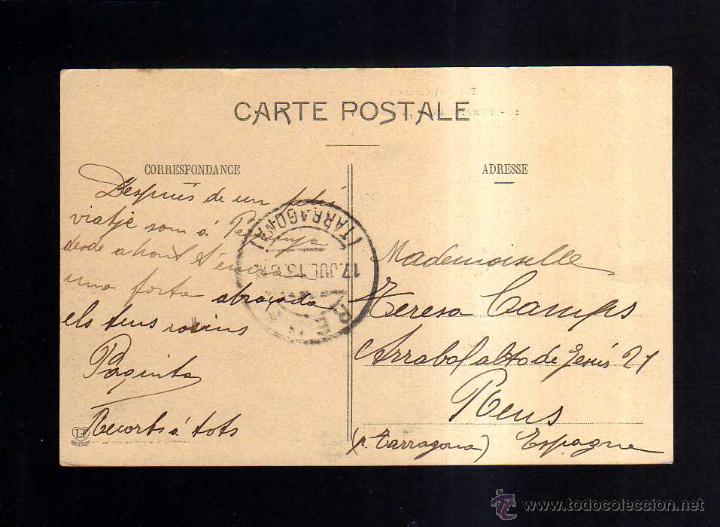 CARTE POSTALE
CORRESPONDANCE
ADRESSE
Después de un
viatje som á
desde ahont
una forta abraçada
els teus cosins
Paquita
Recorts á tots
(TARRAGONA)
17 JUL 13
REUS
Mademoiselle
Teresa Camps
Arrabal alto de Jesús 21
Reus
(p. Tarragona) Espagne
todocoleccion
www.todocoleccion.net